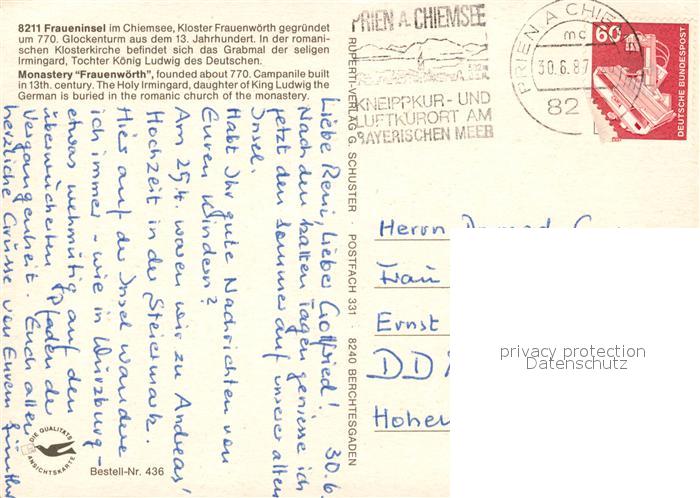 8211 Fraueninsel im Chiemsee, Kloster Frauenwörth gegründet
um 770. Glockenturm aus dem 13. Jahrhundert. In der romani-
schen Klosterkirche befindet sich das Grabmal der seligen
Irmingard, Tochter König Ludwig des Deutschen.
Monastery "Frauenwörth", founded about 770. Campanile built
in 13th. century. The Holy Irmingard, daughter of King Ludwig the
German is buried in the romanic church of the monastery.
30.6.
Liebe Reni, lieber Gottfried!
Nach den kalten Tagen geniesse ich
jetzt den Sommer auf unserer alten
Insel.
Habt Ihr gute Nachrichten von
Euren Kindern?
Am 25.4. waren wir zu Andreas'
Hochzeit in der Steiermark.
Hier auf der Insel wandere
ich immer - wie in Würzburg -
etwas wehmütig auf den
überwucherten Pfaden der
Vergangenheit. Euch allen
herzliche Grüsse von Eurem Günther
DIE QUALITÄTS
ANSICHTSKARTE
Bestell-Nr. 436
RUPERTI-VERLAG G. SCHUSTER · POSTFACH 331 · 8240 BERCHTESGADEN
PRIEN A. CHIEMSEE
KNEIPPKUR- UND
LUFTKURORT AM
BAYERISCHEN MEER
PRIEN A CHIEMSEE
mc
30.6.87
82
60
DEUTSCHE BUNDESPOST
Herrn
Frau
Ernst
DD
Hohen
privacy protection
Datenschutz